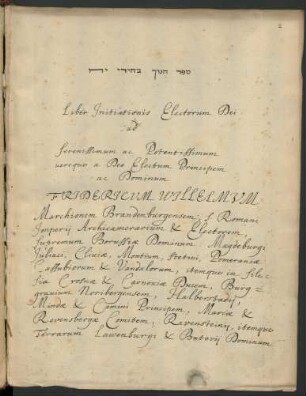 2
ספר חנוך בחירי יה
Liber Initiationis Electorum Dei
ad
serenissimum ac Potentissimum
vereque a Deo Electum Principem
ac Dominum
FRIDERICUM WILLELMUM
Marchionem Brandenburgensem, S. Romani
Imperij Archicamerarium & Electorem,
Supremum Borussiæ Dominum, Magdeburgi
Juliaci, Cliviæ, Montium, Stetini, Pomeraniæ
Cassubiorum & Vandalorum, itemque in Sile-
sia Crosnæ & Carnoviæ Ducem, Burg=
gravium Noribergensem, Halberstadij
Mindæ & Camini Principem, Marciæ &
Ravensbergæ Comitem, Ravensteinij, itemque
Terrarum Lawenburgi & Butovij Dominum